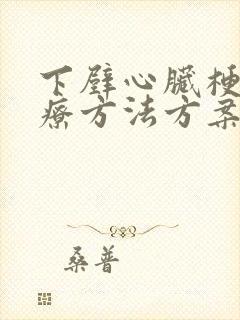 下壁心臟梗
療方法方案
桑普